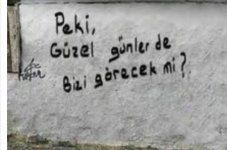 Peki,
Güzel günler de
Bizi görecek mi?